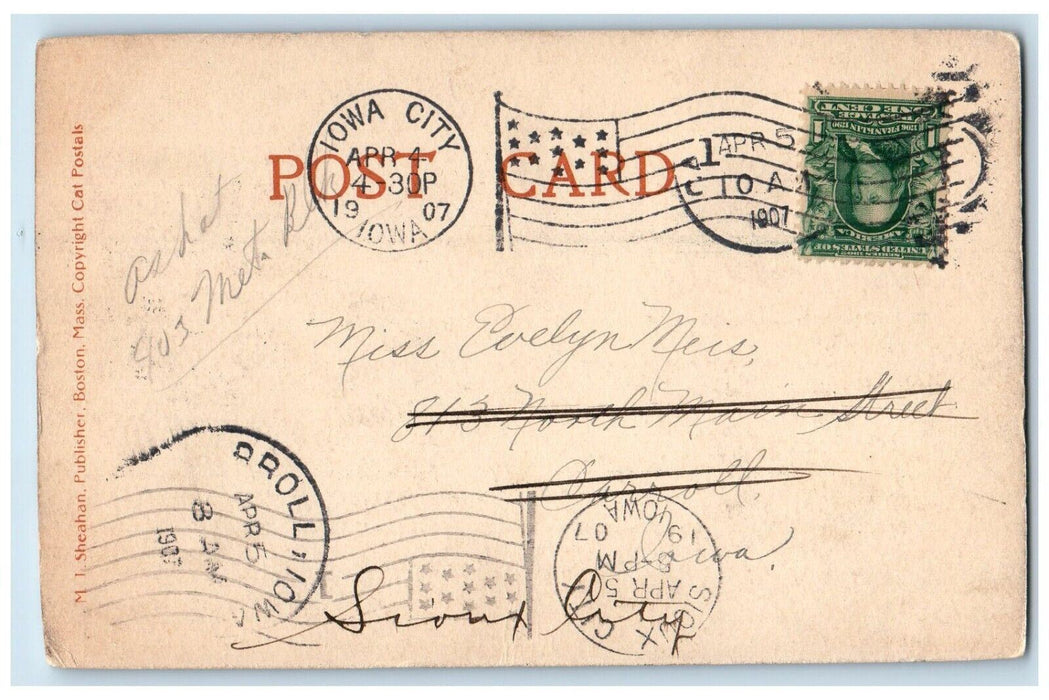 POST CARD
IOWA CITY
APR 4
4 30P
19 07
IOWA
APR 5
10 A
1907
ONE CENT
POSTAGE
1706 FRANKLIN 1790
1
AMERICA
UNITED STATES OF
SERIES 1902
403
Miss Evelyn Neis,
813 North Main Street
Carroll,
Iowa.
Sioux City
M. J. Sheahan, Publisher, Boston, Mass. Copyright Cat Postals
RROLL, IOW
APR 5
8 AM
1907
SIOUX CITY
APR 5
8-PM
19 07
IOWA